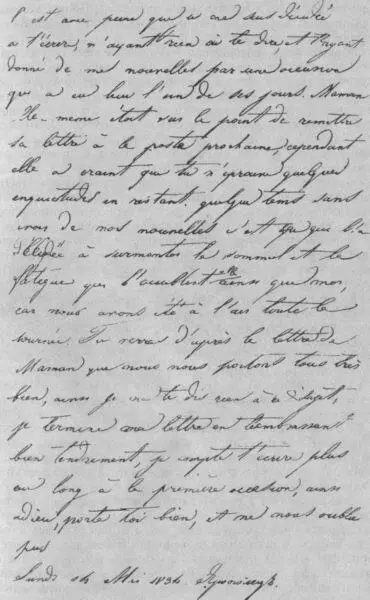 C'est avec peine que je me suis décidée
a t'écrire, n'ayant rien à te dire et t'ayant
donné de mes nouvelles par une occasion
qui a eu lieu l'un de ses jours. Maman
elle-même était sur le point de remettre
sa lettre à la poste prochaine, cependant
elle a craint que tu n'éprouve quelques
inquiétudes en restant quelque tems sans
avoir de nos nouvelles c'est ce qui l'a
décidée à surmonter le sommeil et la
fatigue qui l'accablent elle ainsi que moi,
car nous avons été à l'air toute la
journée. Tu verras d'après la lettre de
Maman que nous nous portons tous très
bien, ainsi je ne te dis rien à ce sujet,
je termine ma lettre en t'embrassant
bien tendrement, je compte t'écrire plus
au long à la première occasion, ainsi
adieu, porte toi bien, et ne nous oublie
pas
Lundi 14 Mai 1834